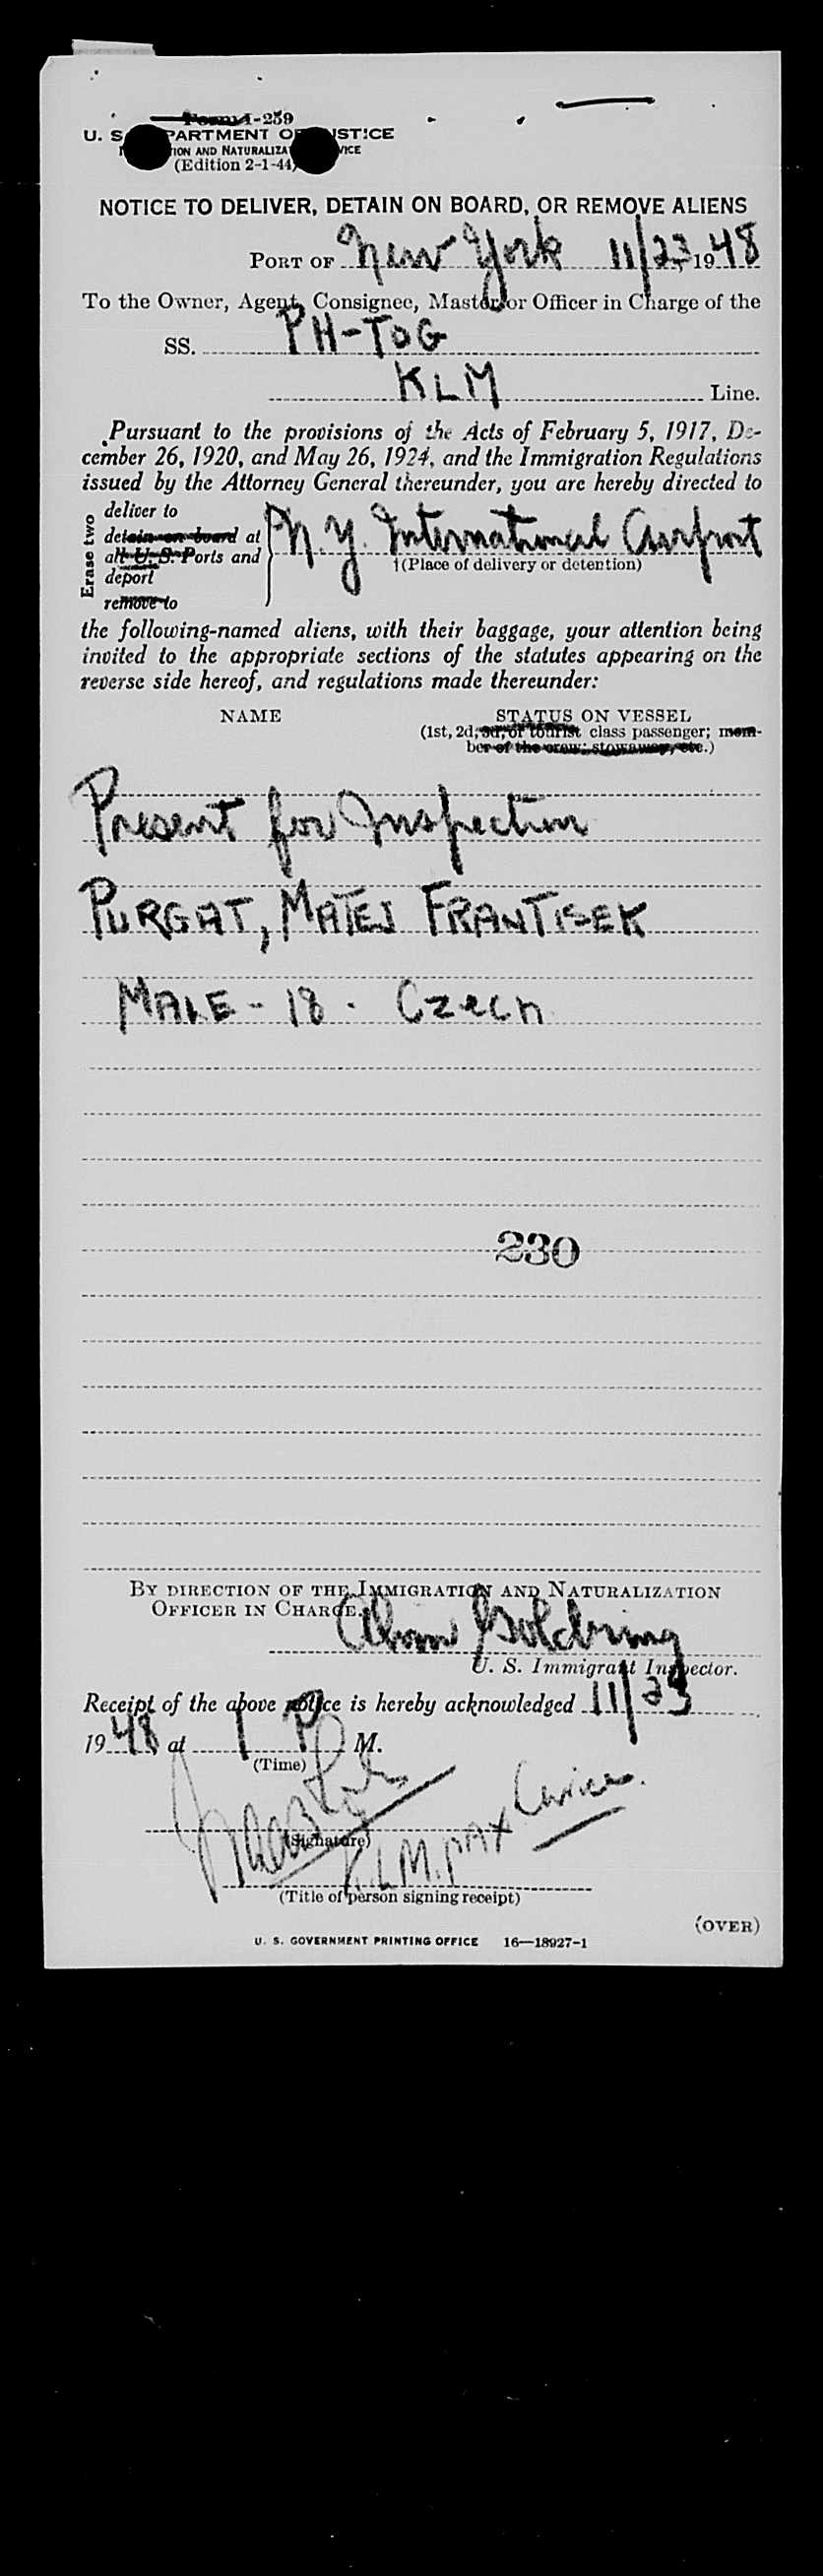 Form I-259
U. S. DEPARTMENT OF JUSTICE
TION AND NATURALIZA VICE
(Edition 2-1-44)
NOTICE TO DELIVER, DETAIN ON BOARD, OR REMOVE ALIENS
PORT OF New York 11/23 1948
To the Owner, Agent, Consignee, Master or Officer in Charge of the
SS. PH-TDG
KLM Line.
Pursuant to the provisions of the Acts of February 5, 1917, De-
cember 26, 1920, and May 26, 1924, and the Immigration Regulations
issued by the Attorney General thereunder, you are hereby directed to
Erase two
deliver to
detain on board at
all U. S. Ports and
deport
remove to
N.Y. International Airport
†(Place of delivery or detention)
the following-named aliens, with their baggage, your attention being
invited to the appropriate sections of the statutes appearing on the
reverse side hereof, and regulations made thereunder:
NAME STATUS ON VESSEL
(1st, 2d, 3d, or tourist class passenger; mem-
ber of the crew; stowaway, etc.)
Present for Inspection
PURGAT, MATEJ FRANTISEK
MALE - 18 - Czech
230
BY DIRECTION OF THE IMMIGRATION AND NATURALIZATION
OFFICER IN CHARGE.
Goldring
U. S. Immigrant Inspector.
Receipt of the above notice is hereby acknowledged 11/23
1948 at 1 P M.
(Time)
(Signature)
KLM. PAX Service.
(Title of person signing receipt)
(OVER)
U. S. GOVERNMENT PRINTING OFFICE 16—18927-1